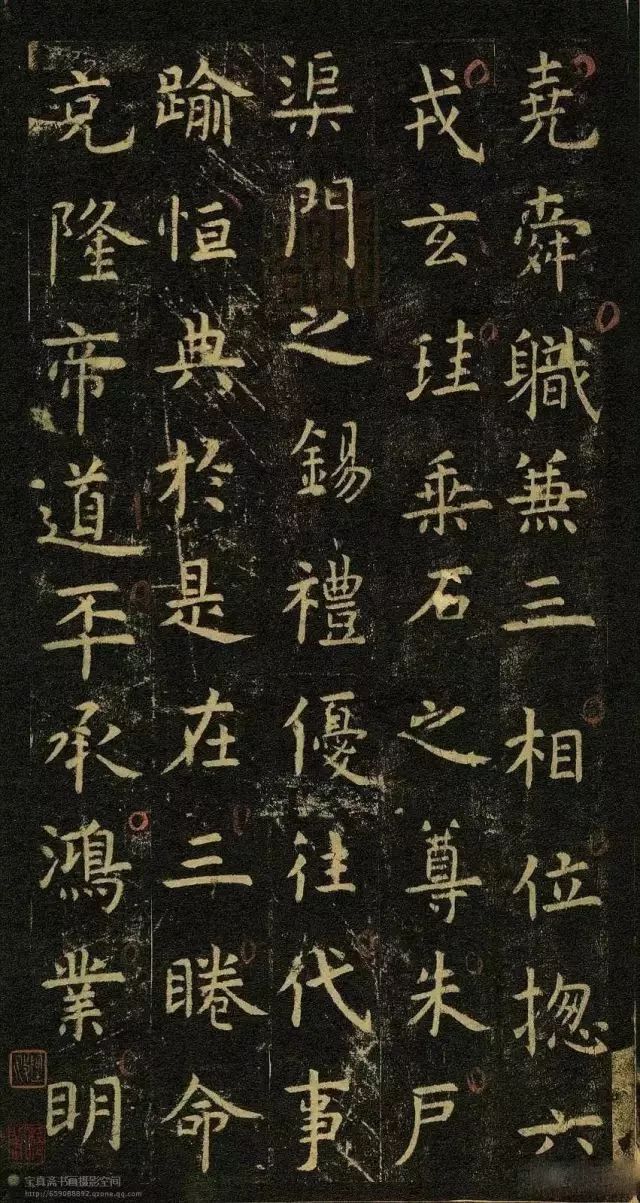 堯舜職兼三相位揔六
戎玄珪乘石之尊朱戶
渠門之錫禮優往代事
踰恒典於是在三睠命
克隆帝道丕承鴻業明
宝真斋书画摄影空间
http://659088892.qzone.qq.com